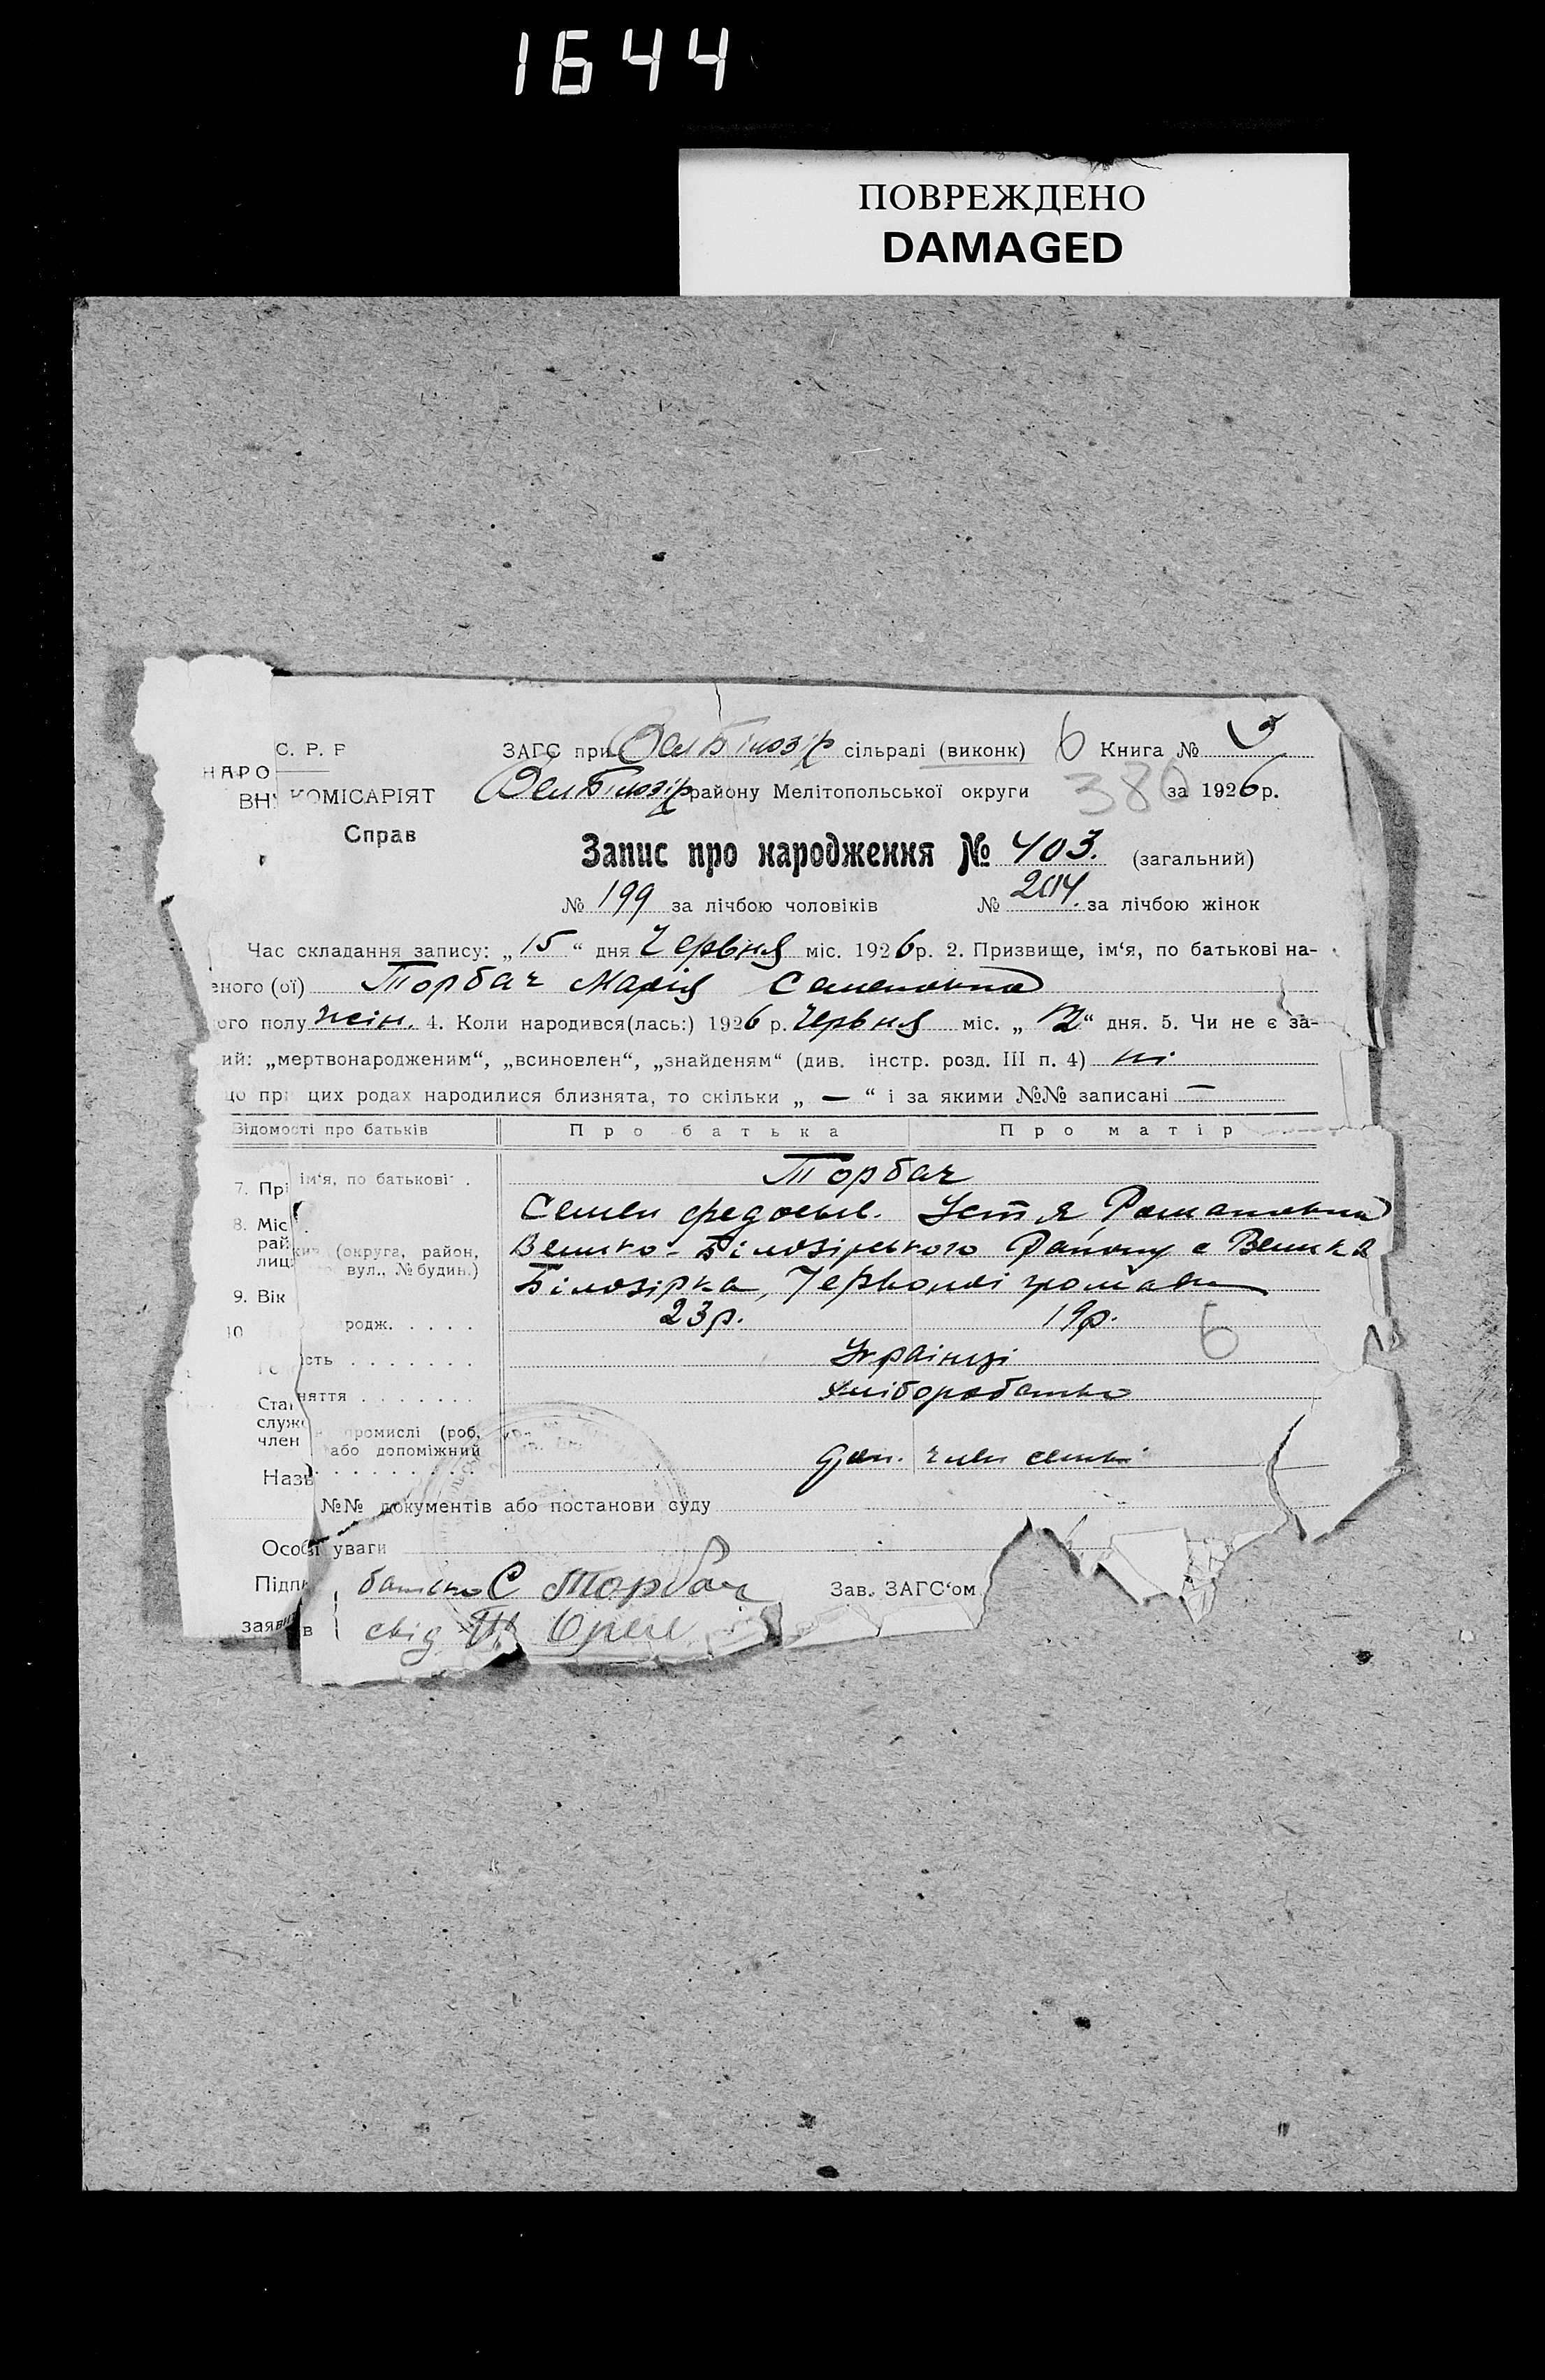 1644
ПОВРЕЖДЕНО
DAMAGED
С. Р. Р
НАРО
ВН КОМІСАРІЯТ
Справ
ЗАГС при Вел Білозір сільраді (виконк) 6 Книга № 3
Вел Білозір району Мелітопольської округи 380 за 1926 р.
Запис про народження № 403. (загальний)
№ 199 за лічбою чоловіків № 204. за лічбою жінок
Час складання запису: „15“ дня Червня міс. 1926 р. 2. Призвище, ім‘я, по батькові на-
еного (ої) Торбач Марія Семеновна
ого полу жін. 4. Коли народився(лась:) 1926 р. Червня міс. „12“ дня. 5. Чи не є за-
ий: „мертвонародженим“, „всиновлен“, „знайденям“ (див. інстр. розд. III п. 4) ні
що при цих родах народилися близнята, то скільки „ — “ і за якими №№ записані —
Відомості про батьків Про батька Про матір
7. Прі ім‘я, по батькові .
Торбач
8. Міс
Семен Федосьев. Устя Романовна
рай (округа, район,
Велико-Білозірського Району с Велика
лиц вул., № будин.)
Білозірка, Червоної громади
9. Вік
23р. 19р. 6
10 родж. . . . .
ість . . . . . . .
Українці
няття . . . . . . .
Хлібороби
Стан
служ
член промислі (роб.
або допоміжний
член семьи
Назв
№№ документів або постанови суду
Особі уваги
Підпи батько С Торбач Зав. ЗАГС‘ом
заяви в свід.